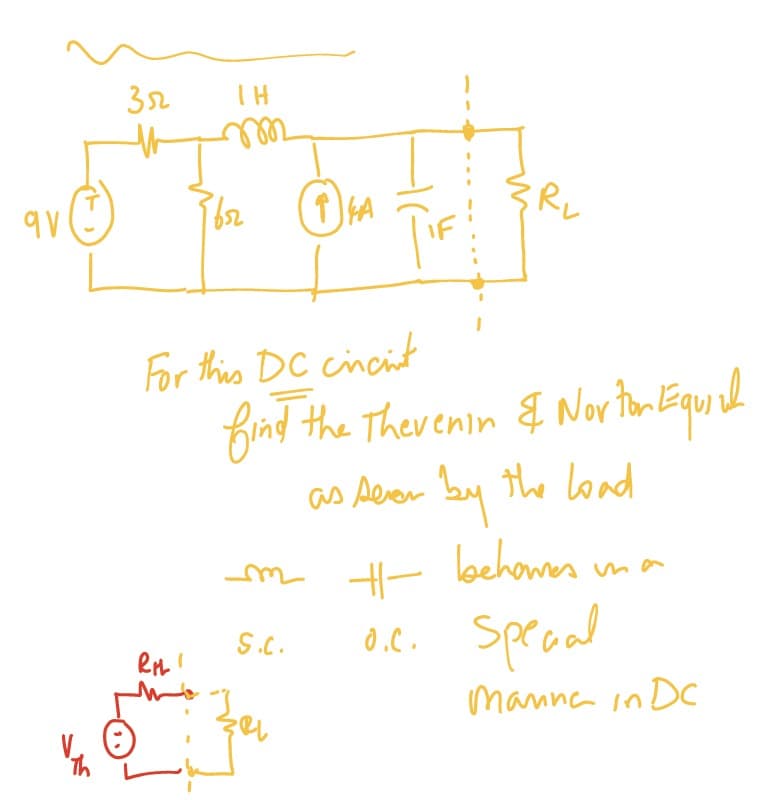 3Ω 1H
9V 6Ω 4A 1F R_L
For this DC circuit
find the Thevenin & Norton Equival
as seen by the load
behaves in a
S.C. O.C. Special
manner in DC
R_th
V_Th R_L